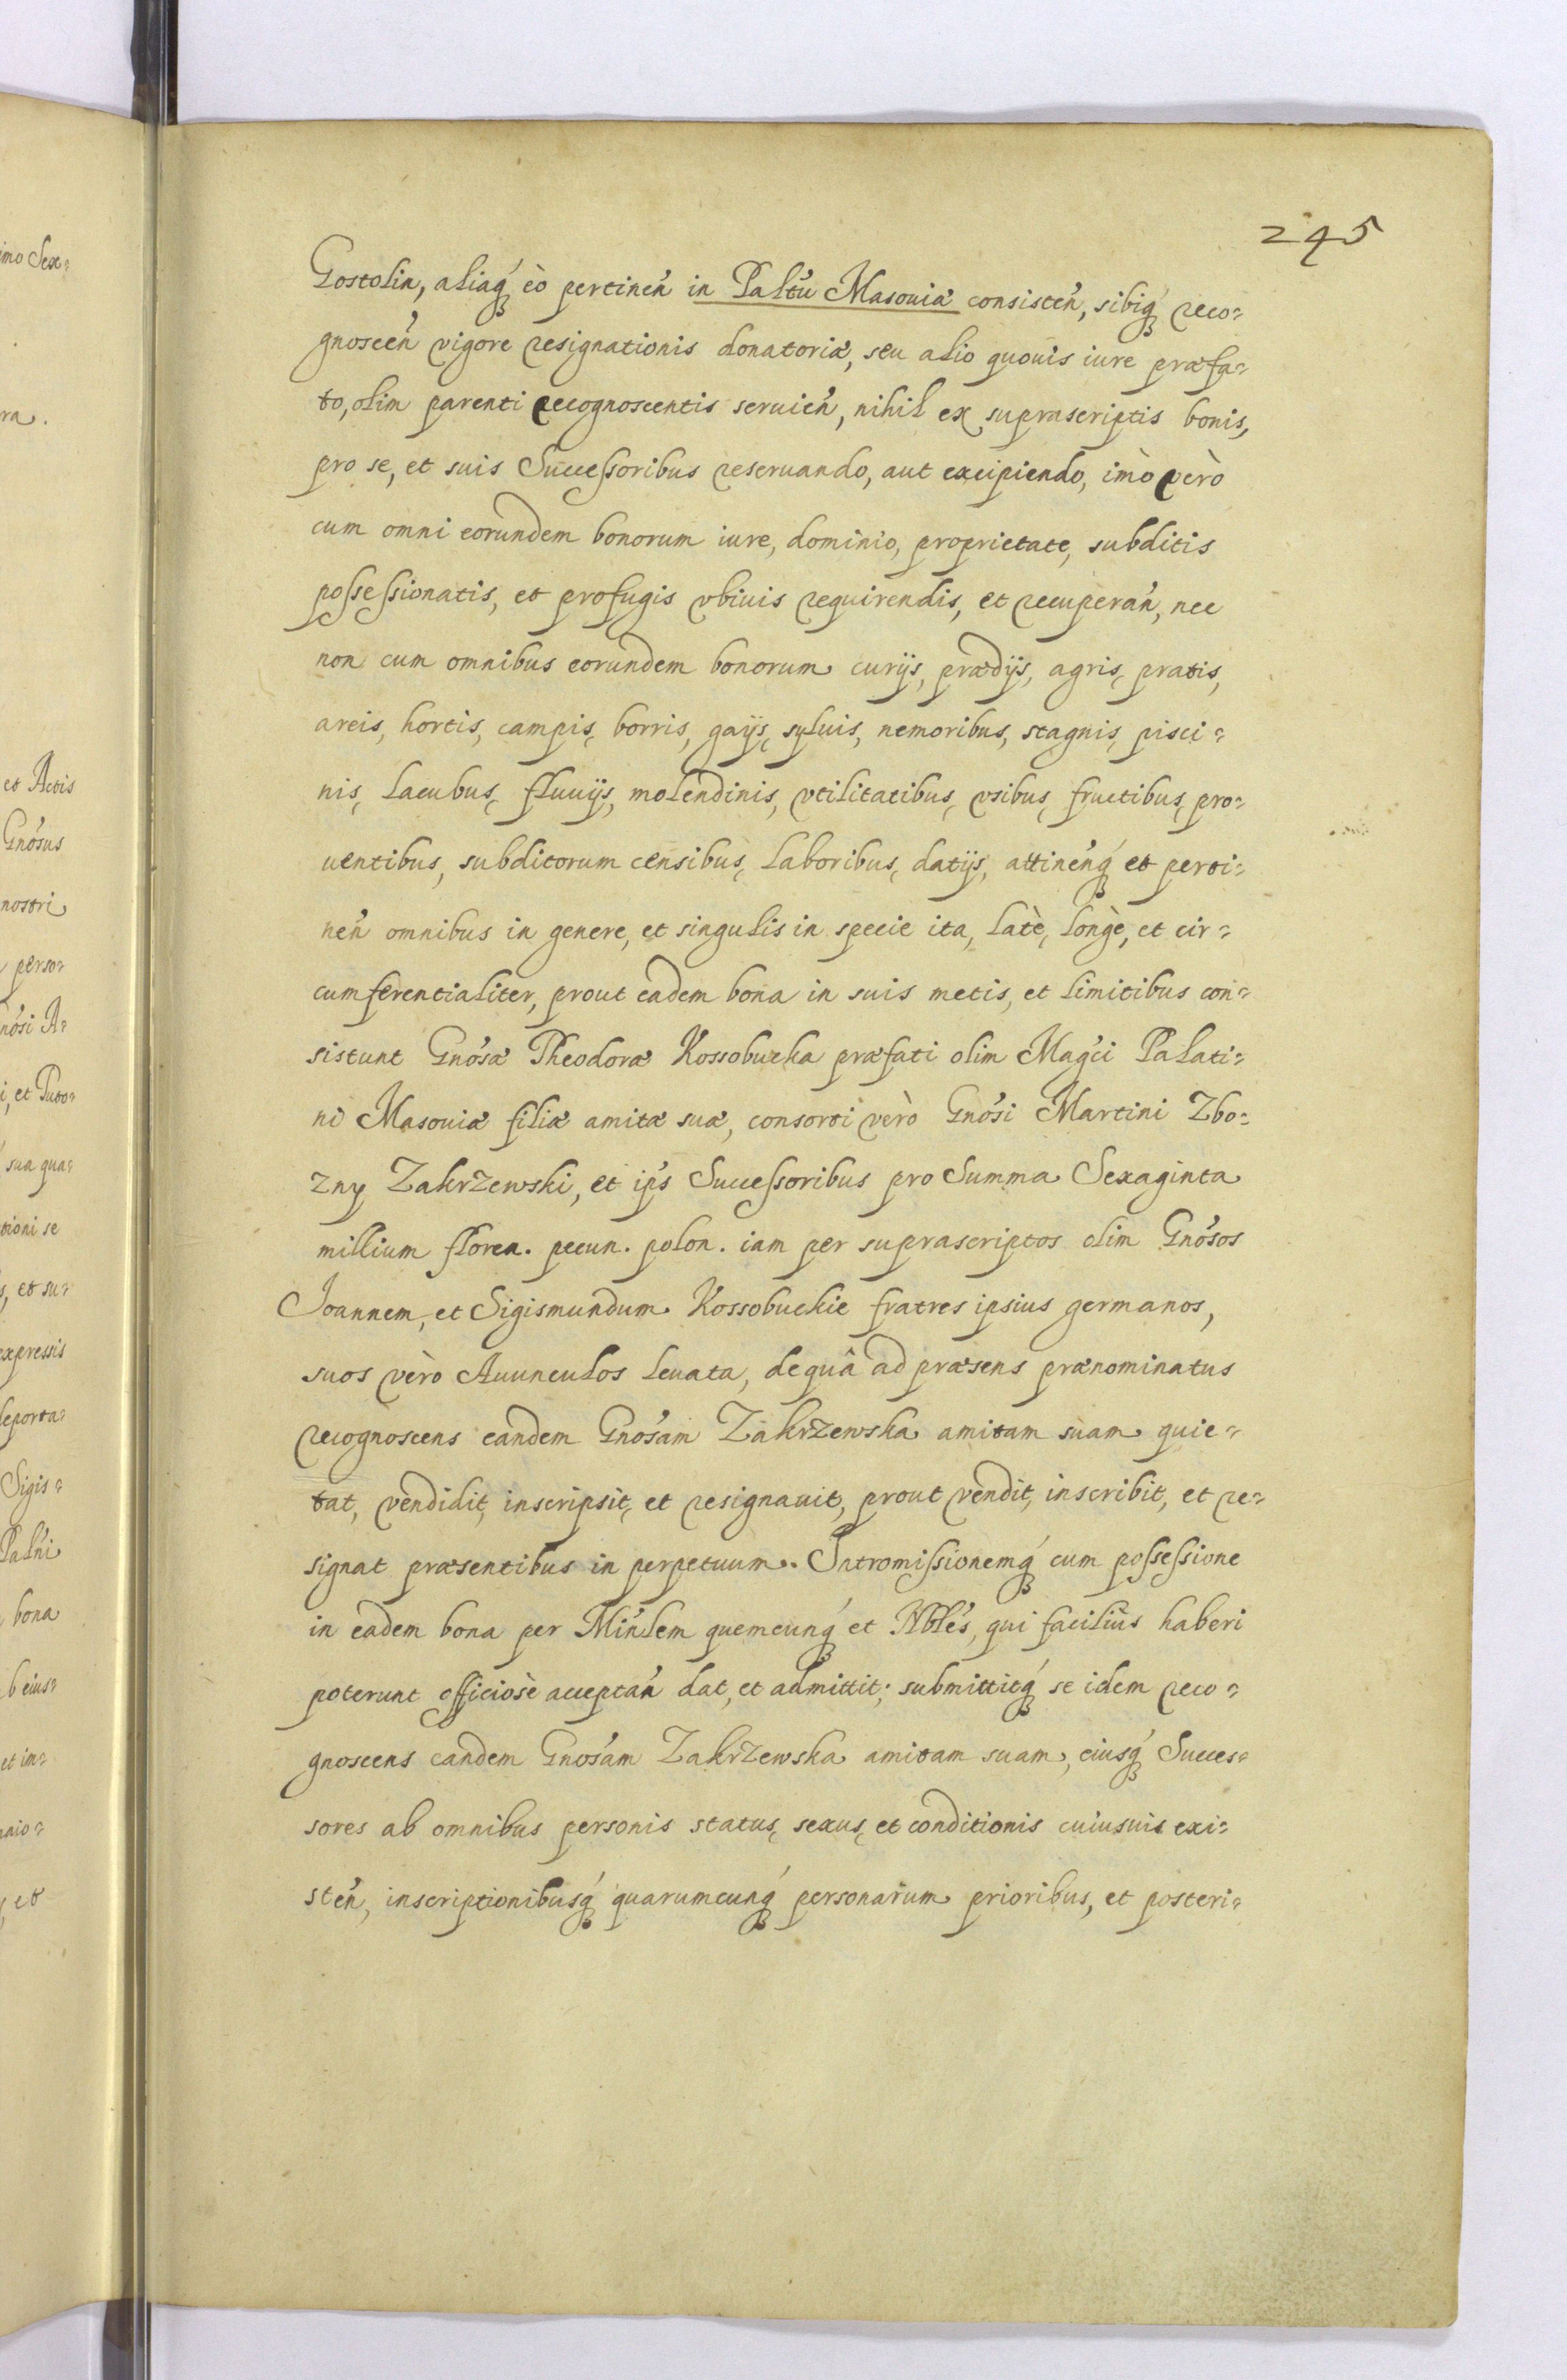 245
Gostolin, aliaq́ȝ eò pertineń in Palt́u Masouiæ consisteń, sibiq́ȝ reco-
gnosceń vigore resignationis donatoriæ, seu alio quouis iure præfa-
to, olim parenti recognoscentis seruień, nihil ex suprascriptis bonis,
pro se, et suis Successoribus reseruando, aut excipiendo, imò verò
cum omni eorundem bonorum iure, dominio, proprietate, subditis
possessionatis, et profugis vbiuis requirendis, et recuperań, nec
non cum omnibus eorundem bonorum curijs, prædijs, agris, pratis,
areis, hortis, campis, borris, gaijs, syluis, nemoribus, stagnis, pisci-
nis, lacubus, fluuijs, molendinis, vtilitatibus, vsibus, fructibus, pro-
uentibus, subditorum censibus, laboribus, datijs, attineńq́ȝ et perti-
neń omnibus in genere, et singulis in specie ita, latè, longè, et cir-
cumferentialiter, prout eadem bona in suis metis, et limitibus con-
sistunt Gnósæ Theodoræ Kossobucka præfati olim Maǵci Palati-
ni Masouiæ filiæ amitæ suæ, consorti verò Gnósi Martini Zbo-
zny Zakrzewski, et iṕs Successoribus pro Summa Sexaginta
millium floren. pecun. polon. iam per suprascriptos olim Gnósos
Joannem, et Sigismundum Kossobuckie fratres ipsius germanos,
suos verò Auunculos leuata, de quâ ad præsens prænominatus
recognoscens eandem Gnósam Zakrzewska amitam suam quie-
tat, vendidit, inscripsit, et resignauit, prout vendit, inscribit, et re-
signat præsentibus in perpetuum. Intromissionemq́ȝ cum possessione
in eadem bona per Mińlem quemcunq́ȝ et Nblés, qui facilius haberi
poterunt officiosè acceptań dat, et admittit; submittitq́ȝ se idem reco-
gnoscens eandem Gnosám Zakrzewska amitam suam, eiusq́ȝ Succes-
sores ab omnibus personis status, sexus, et conditionis cuiusuis exi-
steń, inscriptionibusq́ȝ quarumcunq́ȝ personarum prioribus, et posteri-